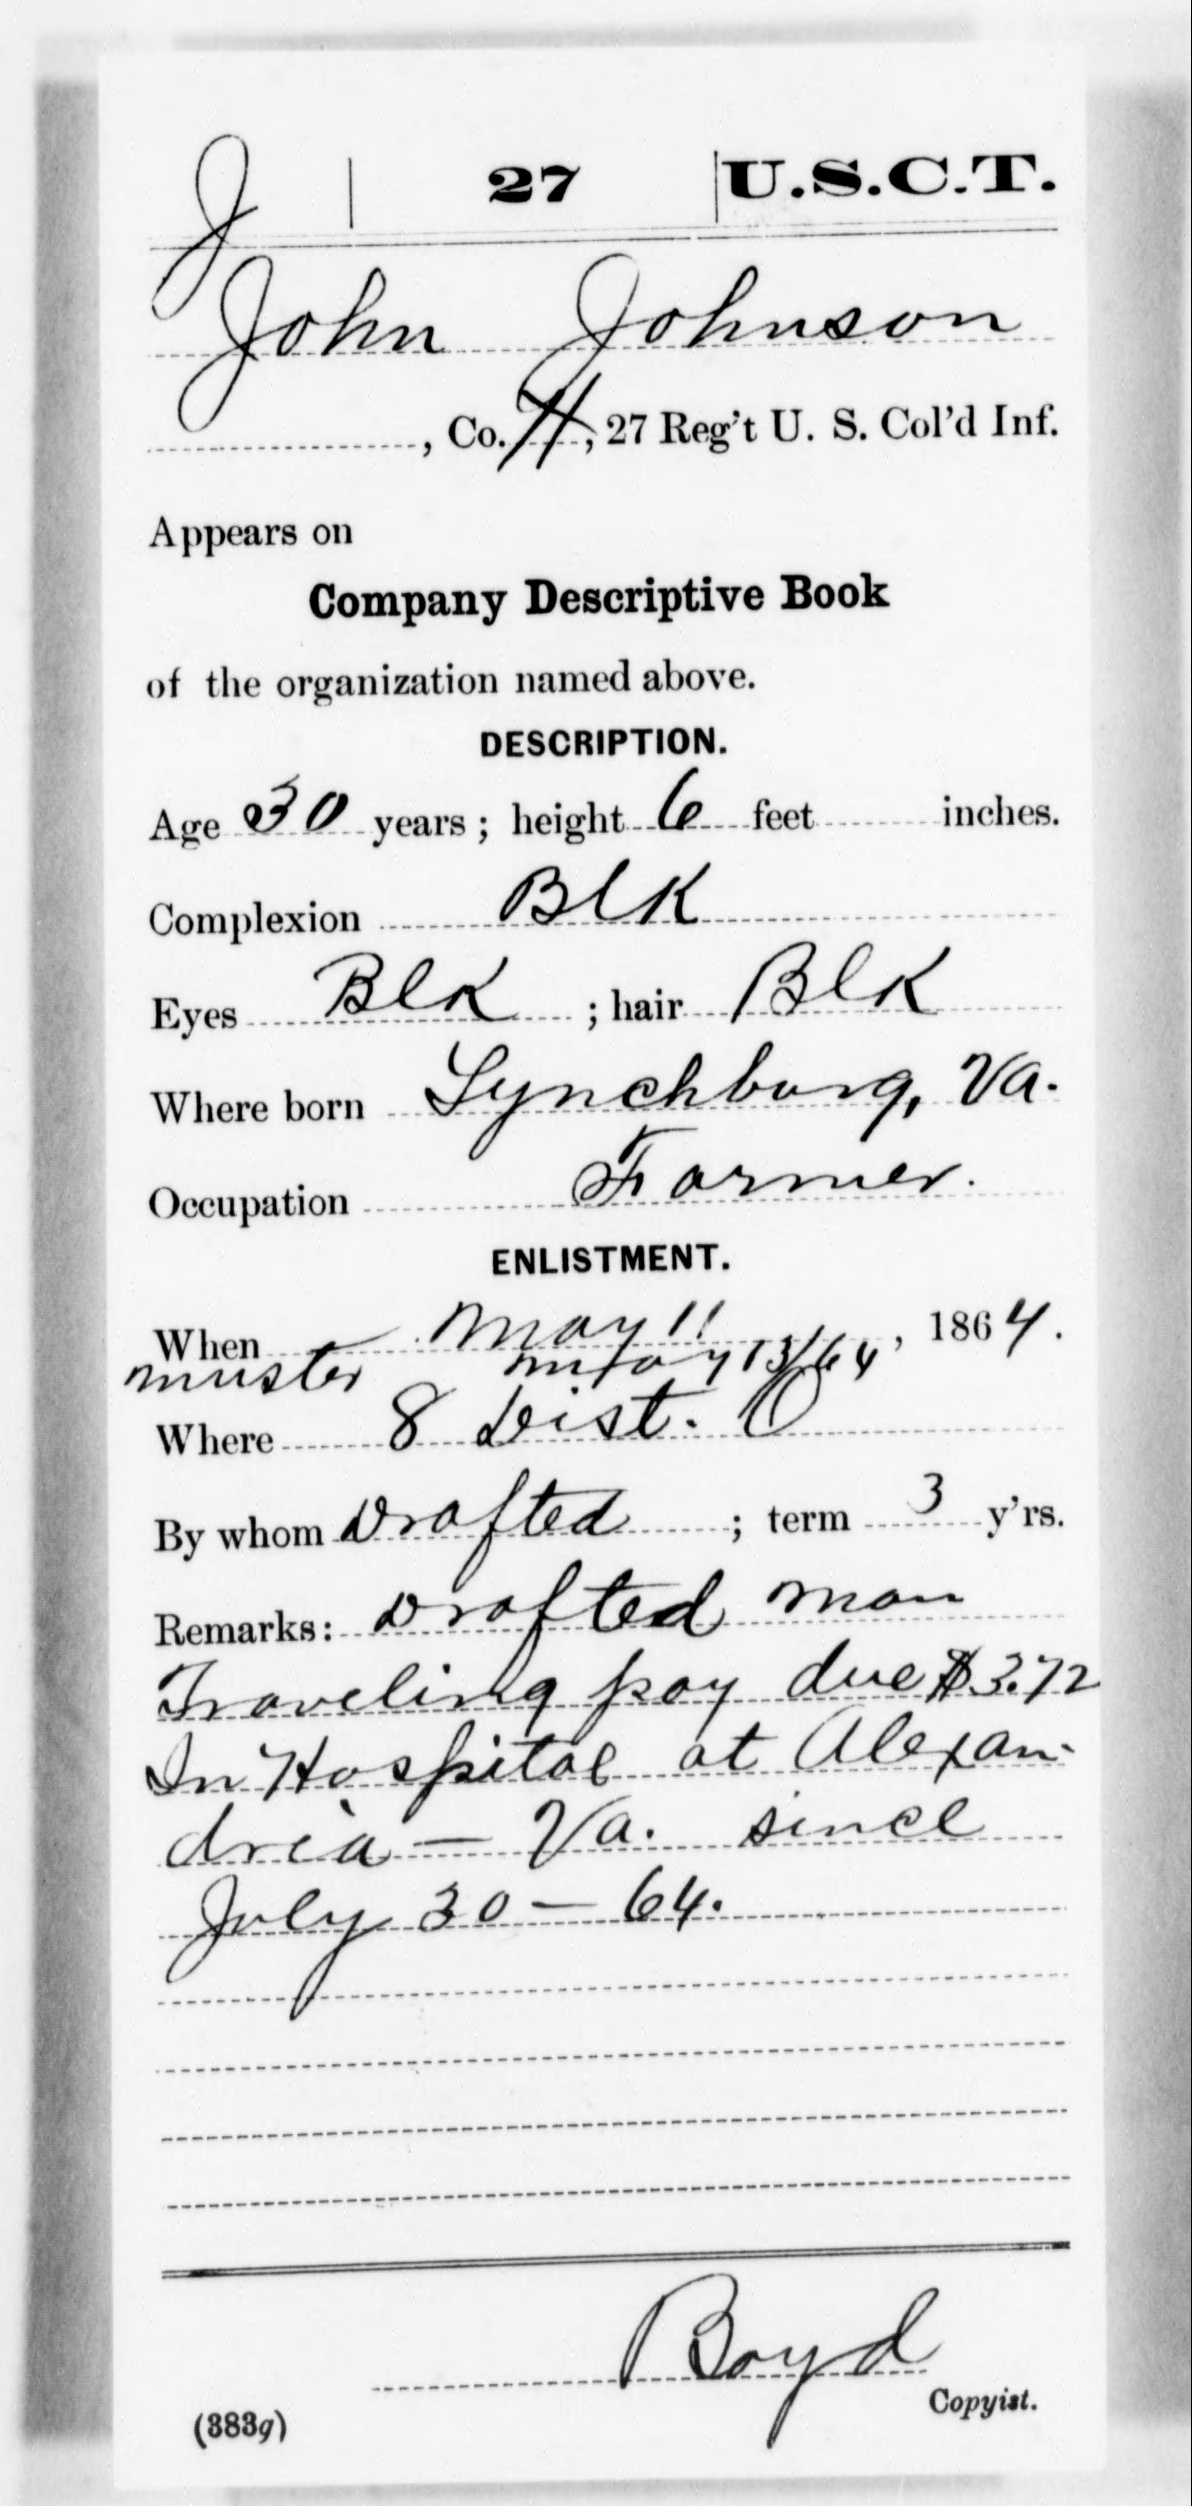 J | 27 | U.S.C.T.
John Johnson
, Co. H, 27 Reg't U. S. Col'd Inf.
Appears on
Company Descriptive Book
of the organization named above.
DESCRIPTION.
Age 30 years; height 6 feet inches.
Complexion Blk
Eyes Blk; hair Blk
Where born Lynchburg, Va.
Occupation Farmer.
ENLISTMENT.
When May 11, 1864.
muster May 13/64
Where 8 Dist. O
By whom Drafted; term 3 y'rs.
Remarks: Drafted man
Traveling pay due $3.72
In Hospital at Alexan-
dria — Va. since
July 30 — 64.
Boyd
Copyist.
(383g)